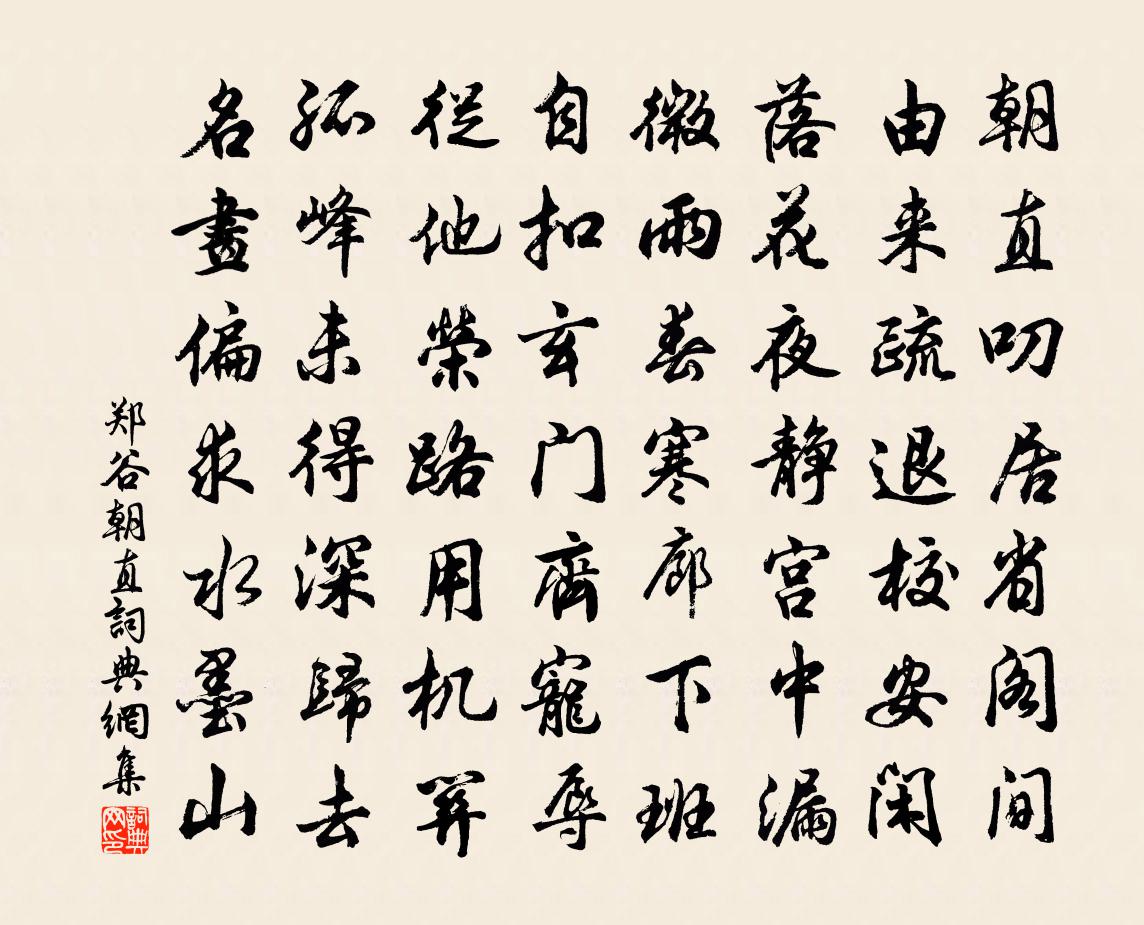 朝直叨居省阁间
由来疏退校安闲
落花夜静宫中漏
微雨春寒廊下班
自扣玄门齊寵辱
從他榮路用机関
孤峰未得深歸去
名畫偏求水墨山
郑谷朝直詞典網集
詞典網印